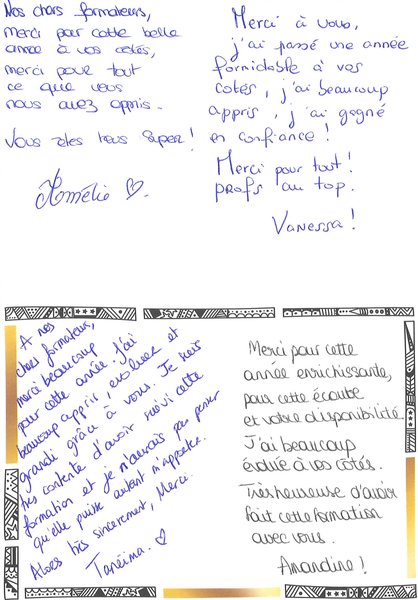 Nos chers formateurs,
merci pour cette belle
année à vos cotés,
merci pour tout
ce que vous
nous avez appris.
Vous êtes tous super !
Merci à vous,
j'ai passé une année
formidable à vos
cotés, j'ai beaucoup
appris, j'ai gagné
en confiance !
Merci pour tout !
profs au top.
Vanessa !
A nos
chers formateur,
merci beaucoup
pour cette année. J'ai
beaucoup appris, evoluer et
grandi grâce à vous. Je suis
très contente d'avoir suivi cette
formation et je n'aurais pas penser
qu'elle puisse autant m'apporter.
Alors très sincèrement, Merci.
Merci pour cette
année enrichissante,
pour cette écoute
et votre disponibilité.
J'ai beaucoup
évoluée à vos côtés.
Très heureuse d'avoir
fait cette formation
avec vous.
Amandine !